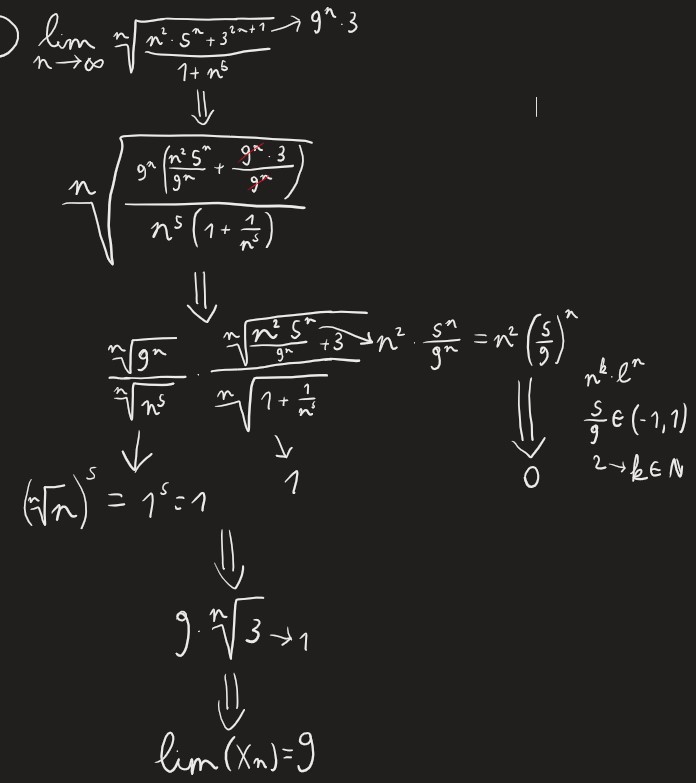 lim n→∞ ⁿ√((n²·5ⁿ+3²ⁿ⁺¹)/(1+n⁵)) → 9ⁿ·3
⇓
ⁿ√((9ⁿ(n²5ⁿ/9ⁿ + 9ⁿ·3/9ⁿ))/(n⁵(1+1/n⁵)))
⇓
ⁿ√9ⁿ/ⁿ√n⁵ · ⁿ√(n²5ⁿ/9ⁿ+3)/ⁿ√(1+1/n⁵) → n²·5ⁿ/9ⁿ = n²(5/9)ⁿ
nᵏ·lⁿ
5/9 ∈ (-1,1)
2→k∈N
(ⁿ√n)⁵ = 1⁵=1
1
0
⇓
9·ⁿ√3→1
⇓
lim(xₙ)=9